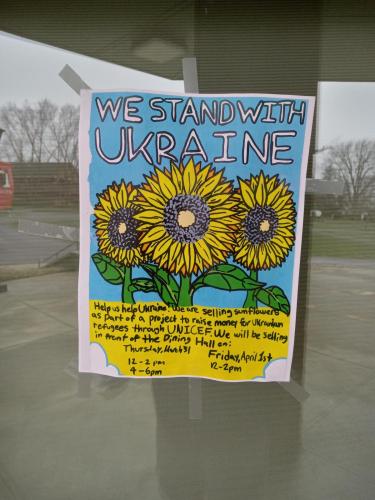 WE STAND WITH
UKRAINE
Help us help Ukraine! We are selling sunflowers
as part of a project to raise money for Ukranian
refugees through UNICEF. We will be selling
in front of the Dining Hall on:
Thursday, March 31
12-2 pm
4-6pm
Friday, April 1st
12-2pm